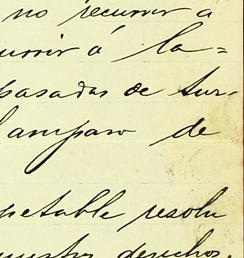 no recurrir a
urrir á la=
pasadas de tur-
l amparo de
petable resolu
nuestros derechos.